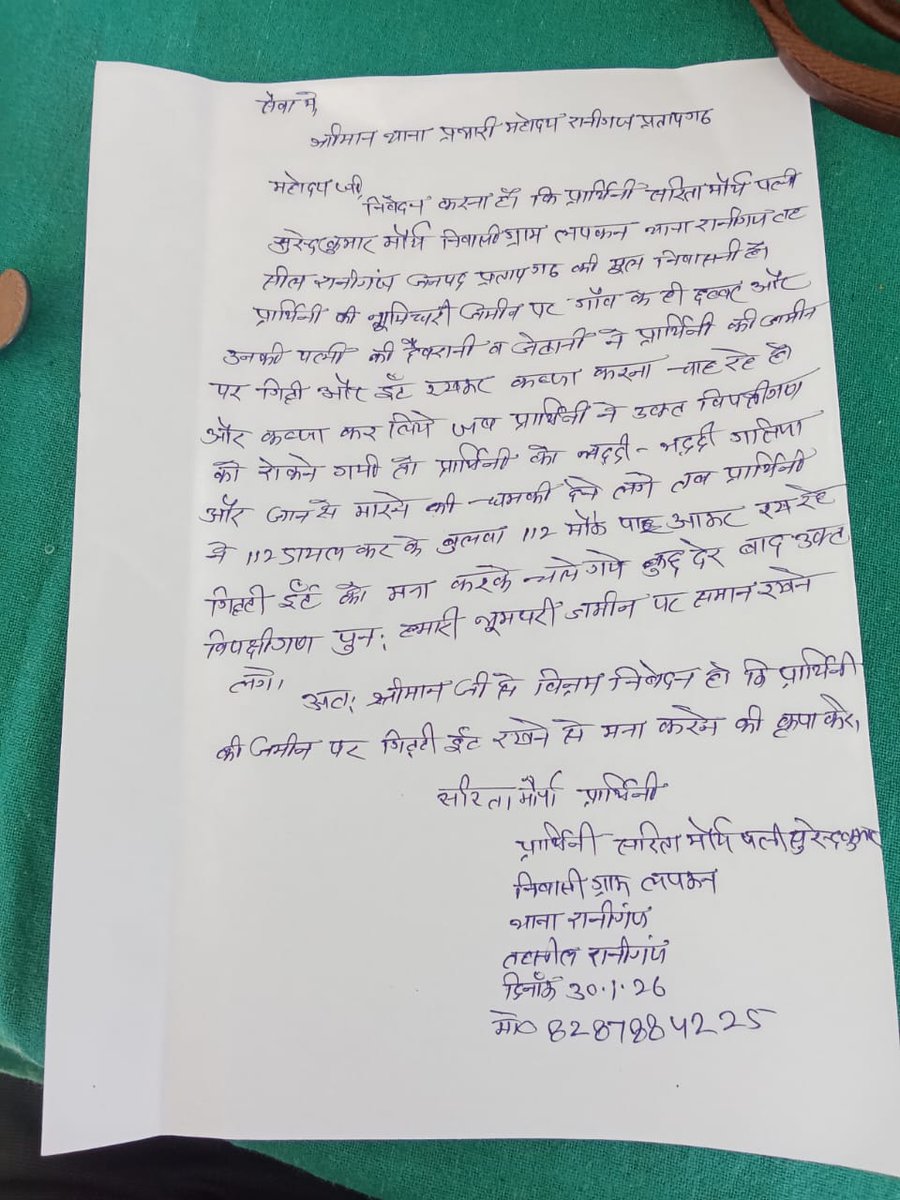 सेवा में,
श्रीमान थाना प्रभारी महोदय रानीगंज प्रतापगढ
महोदय जी,
निवेदन करना है। कि प्रार्थिनी सरिता मौर्य पत्नी
सुरेन्द्रकुमार मौर्य निवासी ग्राम लपकन थाना रानीगंज तह
सील रानीगंज जनपद प्रतापगढ की मूल निवासनी है।
प्रार्थिनी की भूमिधरी जमीन पर गाँव के ही और
उनकी पत्नी की व जेठानी ने प्रार्थिनी की जमीन
पर गिट्टी और ईंट रखकर कब्जा करना चाह रहे है
और कब्जा कर लिये जब प्रार्थिनी ने उक्त विपक्षीगण
को रोकने गयी तो प्रार्थिनी को भद्दी - भद्दी गालिया
और जान से मारने की धमकी देने लगे तब प्रार्थिनी
ने 112 डायल कर के बुलवा 112 मौके पर आकर रख रहे
गिट्टी ईंट को मना करके चले गये कुछ देर बाद उक्त
विपक्षीगण पुन: हमारी भूमधरी जमीन पर समान रखने
लगे।
अत: श्रीमान जी से विनम्र निवेदन है कि प्रार्थिनी
की जमीन पर गिट्टी ईंट रखने से मना करने की कृपा करे।
सरिता मौर्या प्रार्थिनी
प्रार्थिनी सरिता मौर्य पत्नी सुरेन्द्रकुमार
निवासी ग्राम लपकन
थाना रानीगंज
तहसील रानीगंज
दिनाँक 30.1.26
मो० 8287884225